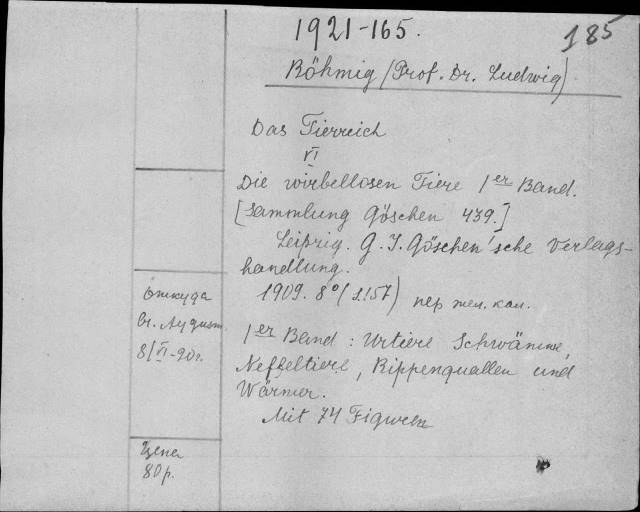 1921-165.
185
Böhmig (Prof. Dr. Ludwig)
Das Tierreich
VI
Die wirbellosen Tiere 1er Band.
[Sammlung Göschen 439.]
Leipzig. G. J. Göschen'sche Verlags-
handlung.
1909. 8° (2.157) пер
1er Band: Urtiere Schwämme,
Nesseltiere, Rippenquallen und
Würmer.
Mit 74 Figuren
Откуда
8/VI-20г.
Цена
80р.